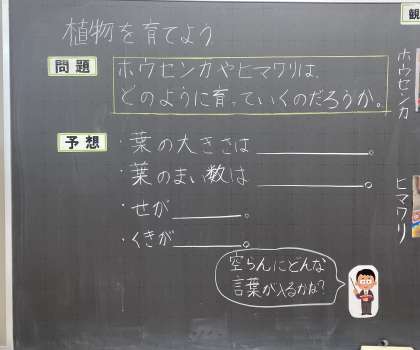 植物を育てよう
問題
ホウセンカやヒマワリは、
どのように育っていくのだろうか。
予想
・葉の大きさは＿＿＿＿＿。
・葉のまい数は＿＿＿＿＿。
・せが＿＿＿＿。
・くきが＿＿＿＿。
空らんにどんな
言葉が入るかな?
観
ホウセンカ
ヒマワリ